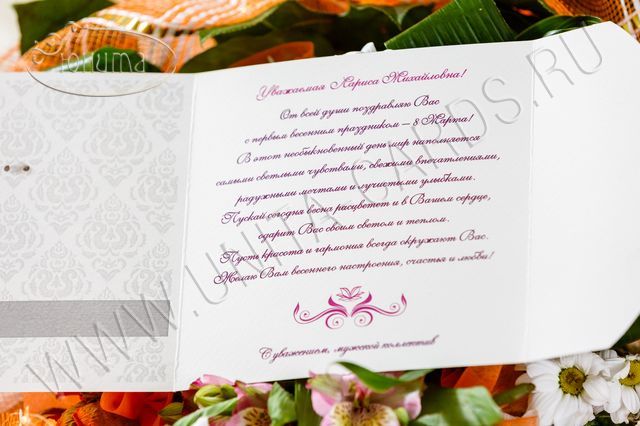 Юнита
Уважаемая Лариса Михайловна!
От всей души поздравляю Вас
с первым весенним праздником – 8 Марта!
В этот необыкновенный день мир наполняется
самыми светлыми чувствами, свежими впечатлениями,
радужными мечтами и лучистыми улыбками.
Пускай сегодня весна расцветет и в Вашем сердце,
одарит Вас своим светом и теплом.
Пусть красота и гармония всегда окружают Вас.
Желаю Вам весеннего настроения, счастья и любви!
С уважением, мужской коллектив
WWW.UNITA-CARDS.RU